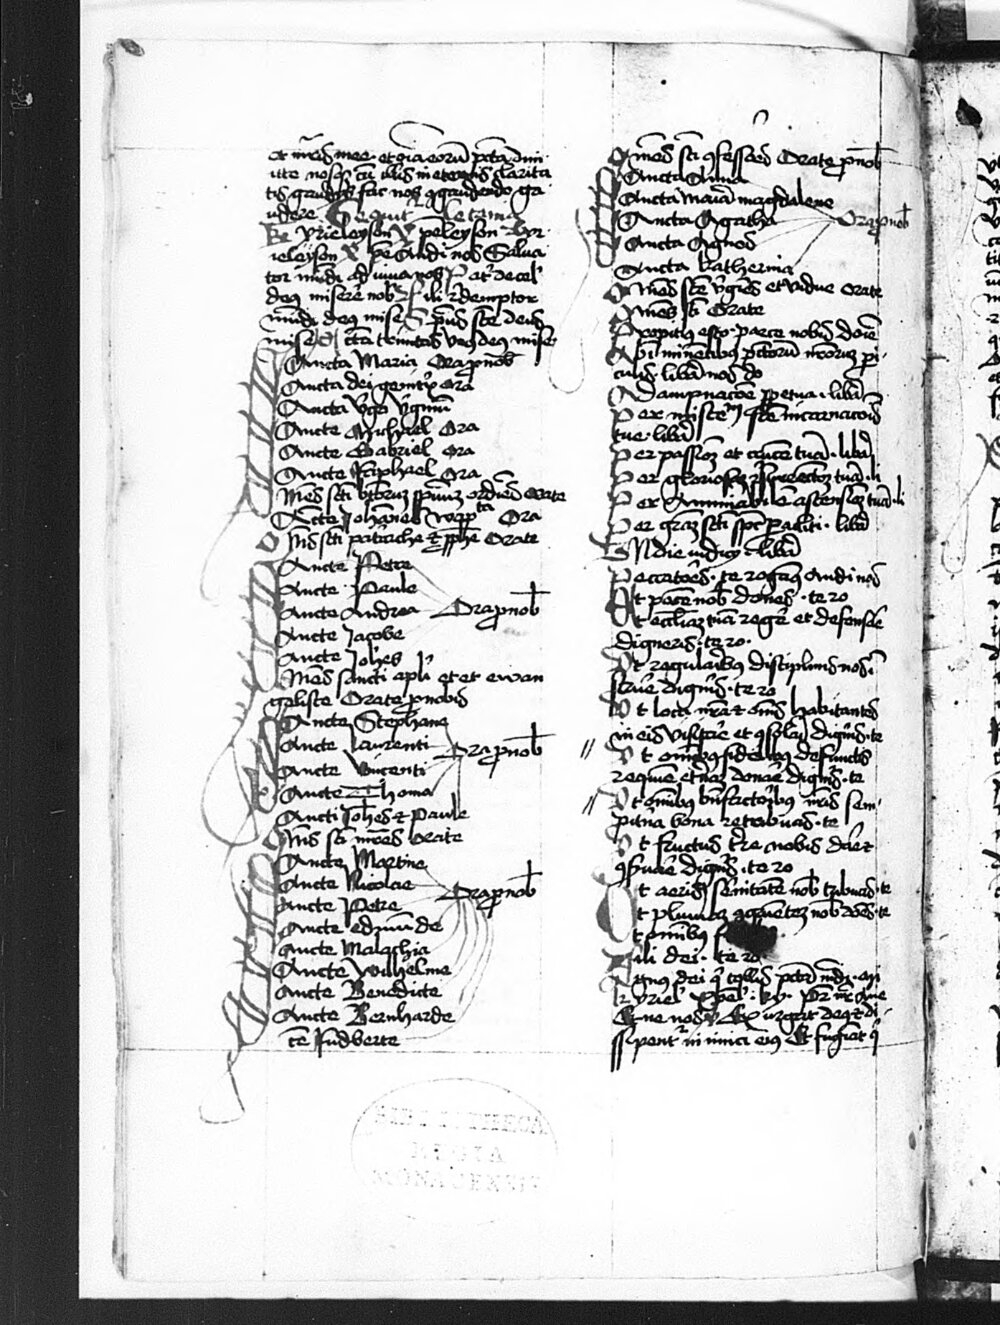 et gaudiis fac nos gaudendo ga
udere Sequitur letania
Kyrieleyson Xpeleyson Kyr
ieleyson Xpe Audi nos Salva
tor mundi adiuva nos Pater de cel
deus miserere nob Fili redemptor
mundi deus mise Spūs scte deus
mise Scta trinitas unus deus mise
Sancta Maria Ora pnob
Sancta dei genitrix Ora
Sancta virgo virginum
Sancte Michael Ora
Sancte Gabriel Ora
Sancte Raphael Ora
Omes scti btorum spirituum ordines Orate
Sancte Johannes bapta Ora
Oms scti patriarche et prophe Orate
Sancte Petre
Sancte Paule
Sancte Andrea Ora pnob
Sancte Jacobe
Sancte Johes
Omes sancti apli et ewan
geliste Orate pnobis
Sancte Stephane
Sancte Laurenti Ora pnob
Sancte Vincenti
Sancte Thoma
Sancti Johes et Paule
Oms scti mres Orate
Sancte Martine
Sancte Nicolae Ora pnob
Sancte Petre
Sancte edmunde
Sancte Malachia
Sancte Wilhelme
Sancte Benedicte
Sancte Bernharde
Omes scti confessores Orate pnob
Sancta Anna
Sancta Maria magdalene
Sancta Agatha Ora pnob
Sancta Agnes
Sancta Katherina
Omes scte virgines et vidue Orate
Omes scti Orate
Propitius esto parce nobis domine
Ab iminentibus peccatorum nostrorum pi
culis libera nos do
A dampnacoe perpetua libera
Per misterium scte incarnacois
tue libera
Per passionem et crucem tua libera
Per gloriosam resurrectionem tua li
Per Admirabilem ascensionem tua li
Per graciam scti spiritus paracliti libera
In die iudicii libera
Peccatores te rogamus Audi nos
Ut pacem nob dones te ro
Ut ecclesiam tuam regere et defensare
digneris te ro
Ut regularibus disciplinis nos in
struere digneris te ro
Ut loca nostra et omnes habitantes
in eis visitare et consolari digneris te
Ut omnibus fidelibus defunctis
requiem eternam donare digneris te
Ut omnibus benefactoribus nostris sem
piterna bona retribuas te
Ut fructus terre nobis dare et
conservare digneris te ro
Ut aeris serenitatem nob tribuas te
Ut pluviam congruentem nob dones te
Ut omnibus
Fili dei te ro
Agnus dei qui tollis peccata mundi
Kyriel Xpel Ky Pr nr
Et ne nos Exurgat deus et di
ssipentur inimici eius Et fugiant q
BIBLIOTHECA
REGIA
MONACENSIS